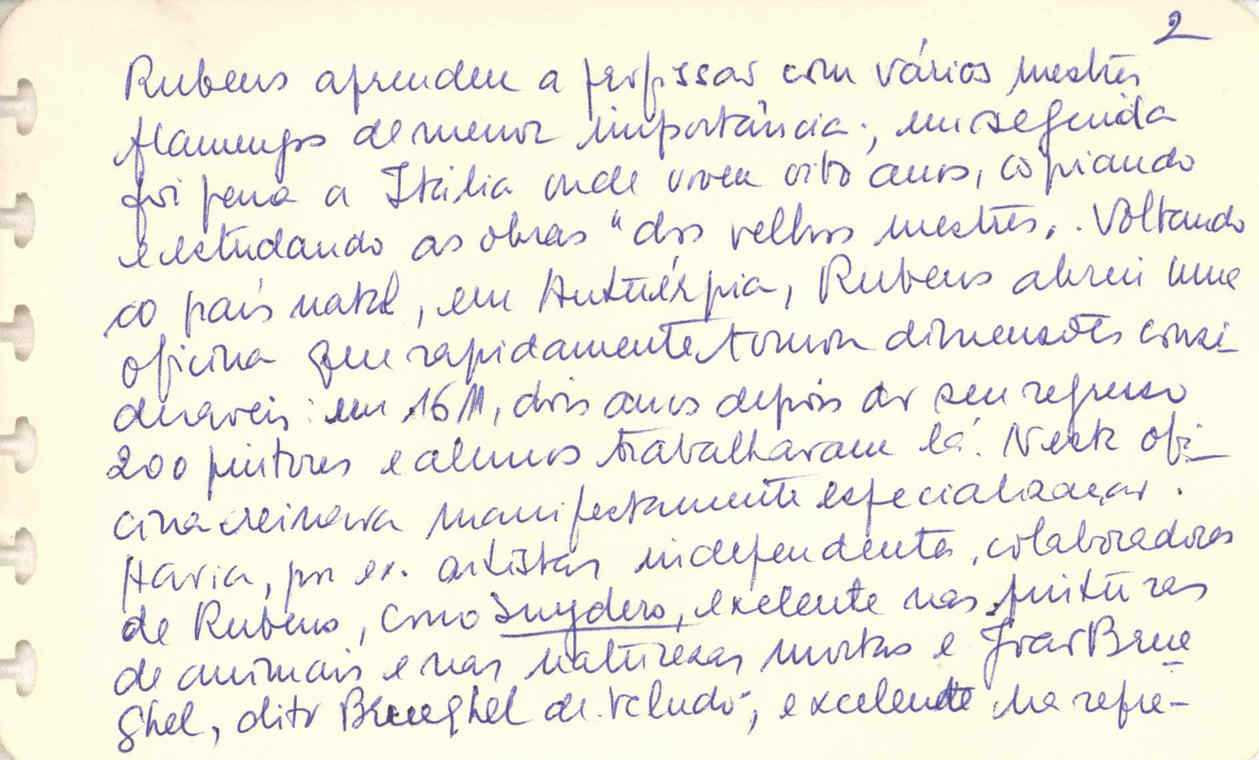 2
Rubens aprendeu a profissão com vários mestres
flamengos de menor importância; em seguida
foi para a Itália onde viveu oito anos, copiando
e estudando as obras "dos velhos mestres. Voltando
ao país natal, em Antuérpia, Rubens abriu uma
oficina que rapidamente tomou dimensões consi-
deraveis: em 1611, dois anos depois do seu regresso
200 pintores e alunos trabalhavam lá. Nesta ofi-
cina reinava manifestamente especialização.
Havia, por ex. artistas independentes, colaboradores
de Rubens, como Snyders, excelente nas pinturas
de animais e nas naturezas mortas e João Brue
ghel, dito Brueghel de Veludo, excelente na repre-